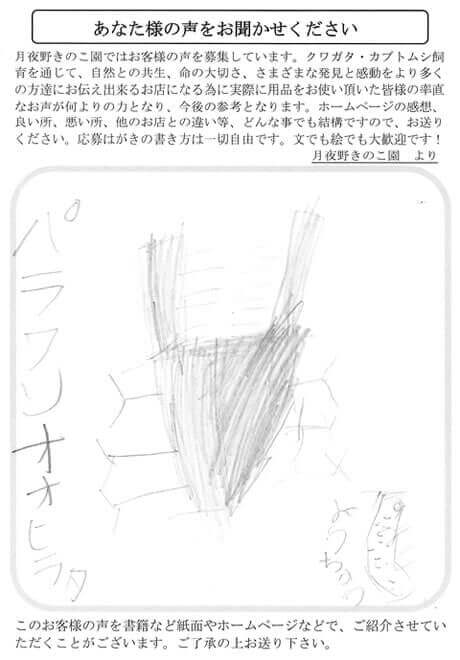 あなた様の声をお聞かせください
月夜野きのこ園ではお客様の声を募集しています。クワガタ・カブトムシ飼
育を通じて、自然との共生、命の大切さ、さまざまな発見と感動をより多く
の方達にお伝え出来るお店になる為に実際に用品をお使い頂いた皆様の率直
なお声が何よりの力となり、今後の参考となります。ホームページの感想、
良い所、悪い所、他のお店との違い等、どんな事でも結構ですので、お送り
ください。応募はがきの書き方は一切自由です。文でも絵でも大歓迎です！
月夜野きのこ園　より
パラワンオオヒラタ
ようちゅう
このお客様の声を書籍など紙面やホームページなどで、ご紹介させてい
ただくことがございます。ご了承の上お送り下さい。